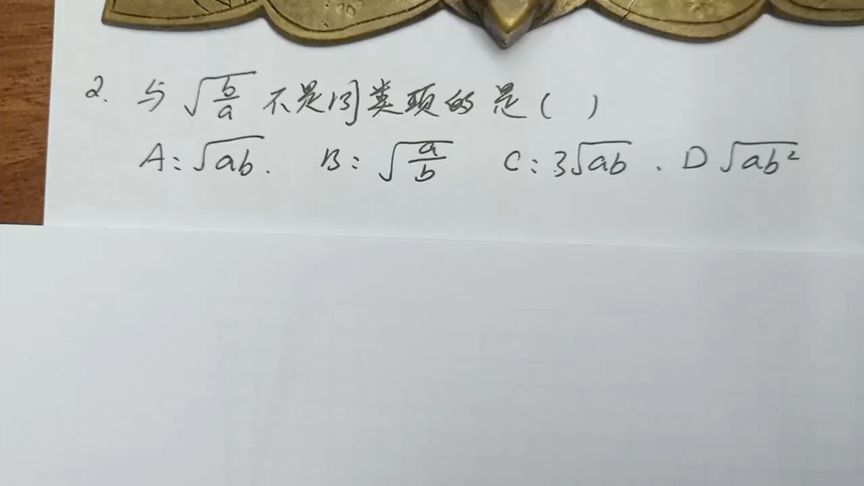 2. 与 √(b/a) 不是同类项的是 ( )
A: √ab. B: √(a/b) C: 3√ab . D √ab²